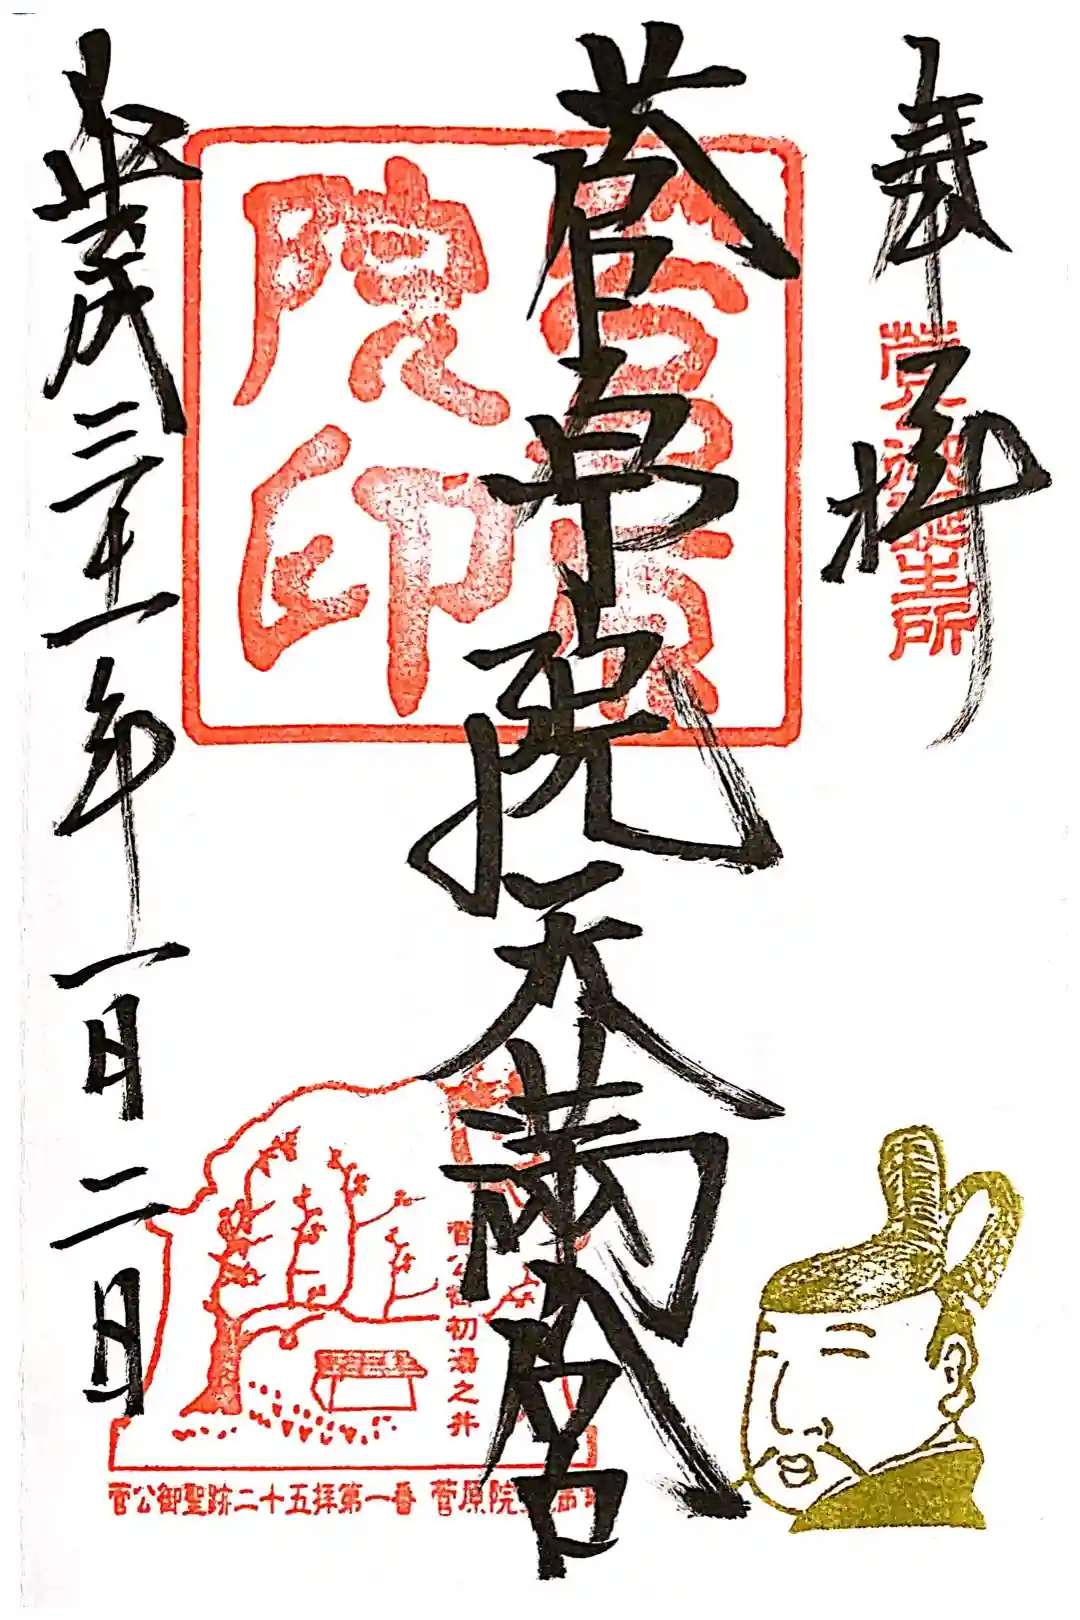 奉拝
菅公御誕生所
菅原院天満宮
菅原院印
平成三十一年一月二日
菅公御初湯之井
菅公御聖跡二十五拝第一番 菅原院天満宮